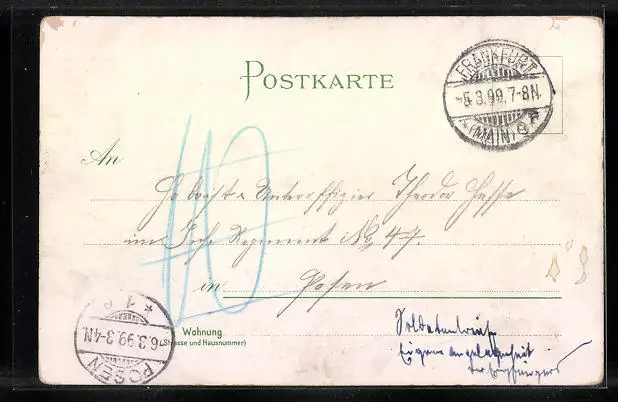 POSTKARTE
FRANKFURT
-5.3.99.7-8N.
(MAIN) 9
10
An
Hoboist u. Unteroffizier Theodor Hesse
im Inf. Regiment No 47.
in Posen
Wohnung
(Strasse und Hausnummer)
* 1
6.3.99.3-4N.
POSEN
Soldatenbrief
Eigene Angelegenheit
des Empfängers